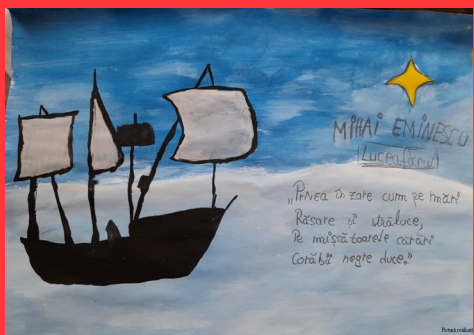 MIHAI EMINESCU
LUCEAFĂRUL
„Privea în zare cum pe mări
Răsare și străluce,
Pe mișcătoarele cărări
Corăbii negre duce.”